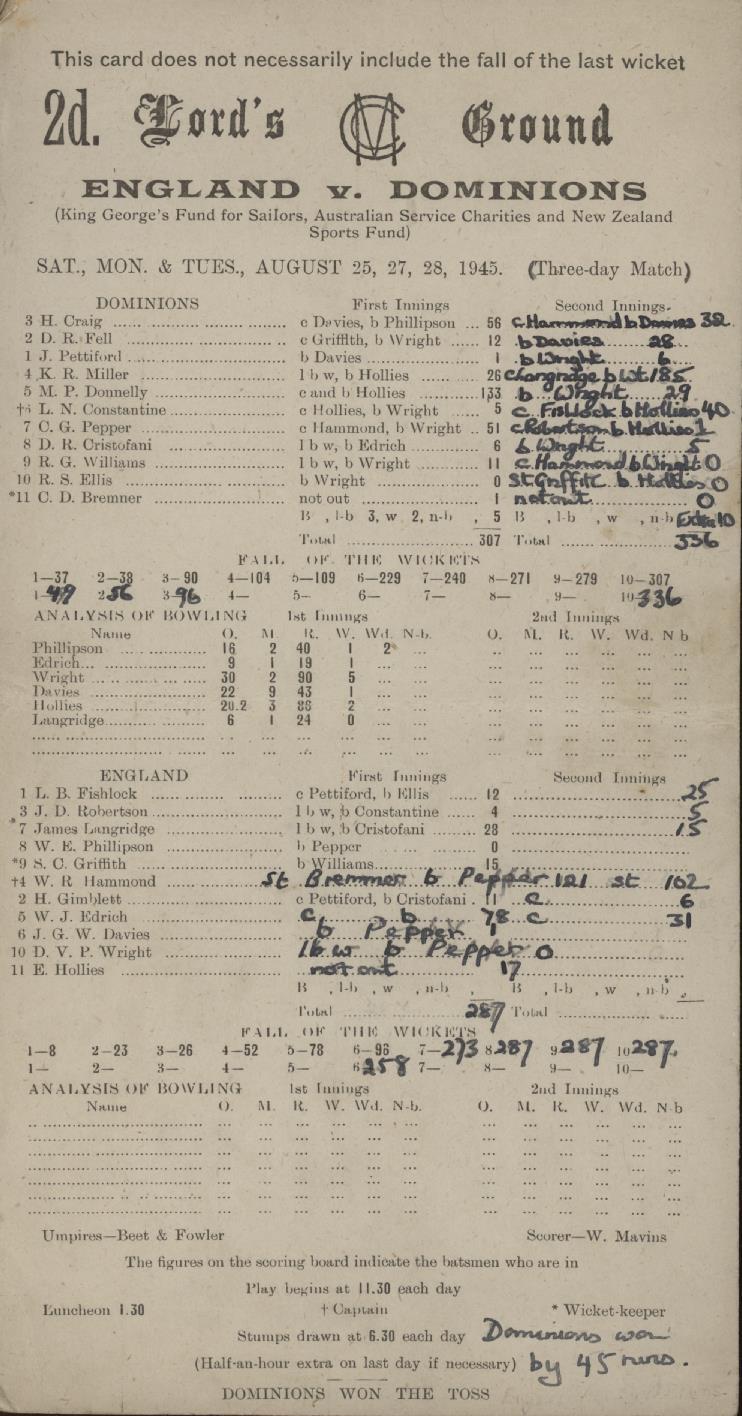 This card does not necessarily include the fall of the last wicket
2d. Lord's MCC Ground
ENGLAND v. DOMINIONS
(King George's Fund for Sailors, Australian Service Charities and New Zealand
Sports Fund)
SAT., MON. & TUES., AUGUST 25, 27, 28, 1945. (Three-day Match)
DOMINIONS First Innings Second Innings.
3 H. Craig c Davies, b Phillipson 56 c Hammond b Davies 32
2 D. R. Fell c Griffith, b Wright 12 b Davies 28
1 J. Pettiford b Davies 1 b Wright 6
4 K. R. Miller l b w, b Hollies 26 c Langridge b Wt 185
5 M. P. Donnelly c and b Hollies 133 b Wright 29
†6 L. N. Constantine c Hollies, b Wright 5 c Fishlock b Hollies 40
7 C. G. Pepper c Hammond, b Wright 51 c Robertson b Hollies 1
8 D. R. Cristofani l b w, b Edrich 6 b Wright 5
9 R. G. Williams l b w, b Wright 11 c Hammond b Wright 0
10 R. S. Ellis b Wright 0 St Griffith b Hollies 0
*11 C. D. Bremner not out 1 not out 0
B , l-b 3, w 2, n-b , 5 B , l-b , w , n-b Extra 10
Total 307 Total 336
FALL OF THE WICKETS
1—37 2—38 3—90 4—104 5—109 6—229 7—240 8—271 9—279 10—307
1—49 2—56 3—96 4— 5— 6— 7— 8— 9— 10—336
ANALYSIS OF BOWLING 1st Innings 2nd Innings
Name O. M. R. W. Wd. N-b. O. M. R. W. Wd. N b
Phillipson 16 2 40 1 2
Edrich 9 1 19 1
Wright 30 2 90 5
Davies 22 9 43 1
Hollies 20.2 3 88 2
Langridge 6 1 24 0
ENGLAND First Innings Second Innings
1 L. B. Fishlock c Pettiford, b Ellis 12 25
3 J. D. Robertson l b w, b Constantine 4 5
7 James Langridge l b w, b Cristofani 28 15
8 W. E. Phillipson b Pepper 0
*9 S. C. Griffith b Williams 15
†4 W. R Hammond St Bremner b Pepper 121 st 102
2 H. Gimblett c Pettiford, b Cristofani . 11 c 6
5 W. J. Edrich c b 78 c 31
6 J. G. W. Davies b Pepper 1
10 D. V. P. Wright lbw b Pepper 0
11 E. Hollies not out 17
B , l-b , w , n-b , B , l-b , w , n-b ,
Total 287 Total
FALL OF THE WICKETS
1—8 2—23 3—26 4—52 5—78 6—96 7—273 8 287 9 287 10 287
1— 2— 3— 4— 5— 6 258 7— 8— 9— 10—
ANALYSIS OF BOWLING 1st Innings 2nd Innings
Name O. M. R. W. Wd. N-b. O. M. R. W. Wd. N b
Umpires—Beet & Fowler Scorer—W. Mavins
The figures on the scoring board indicate the batsmen who are in
Play begins at 11.30 each day
Luncheon 1.30 † Captain * Wicket-keeper
Stumps drawn at 6.30 each day Dominions won
(Half-an-hour extra on last day if necessary) by 45 runs.
DOMINIONS WON THE TOSS